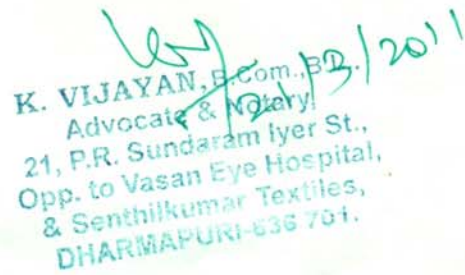 21/3/2011
K. VIJAYAN, B.Com., B.L.,
Advocate & Notary
21, P.R. Sundaram Iyer St.,
Opp. to Vasan Eye Hospital,
& Senthilkumar Textiles,
DHARMAPURI-636 701.